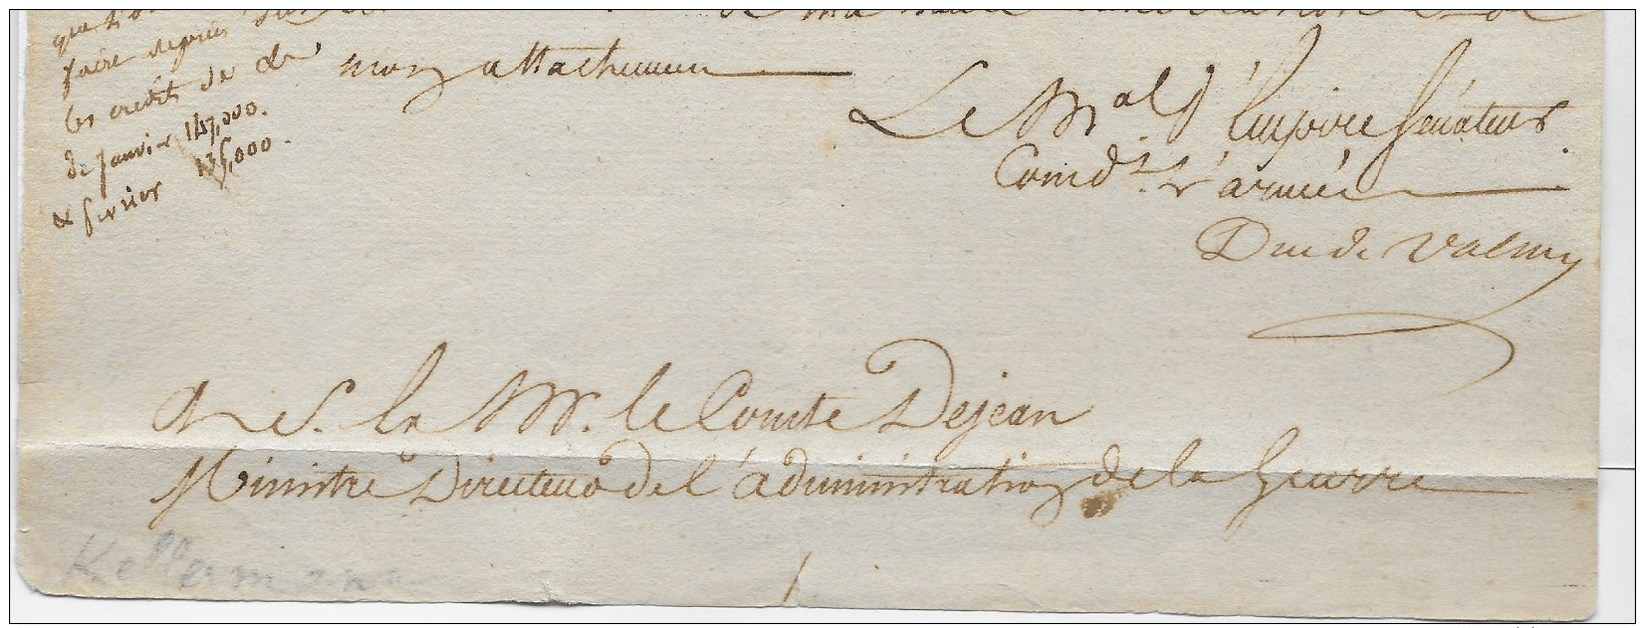 faire depuis sur
les crédits de
de janvier 147,000.
& fevrier 135,000.
de ma haute considération & de
mon attachement
Le Mal. d'Empire Sénateur
Comdt. l'armée
Duc de Valmy
A S. Ex Mr. le Comte Dejean
Ministre Directeur de l'administration de la Guerre
Kellermann